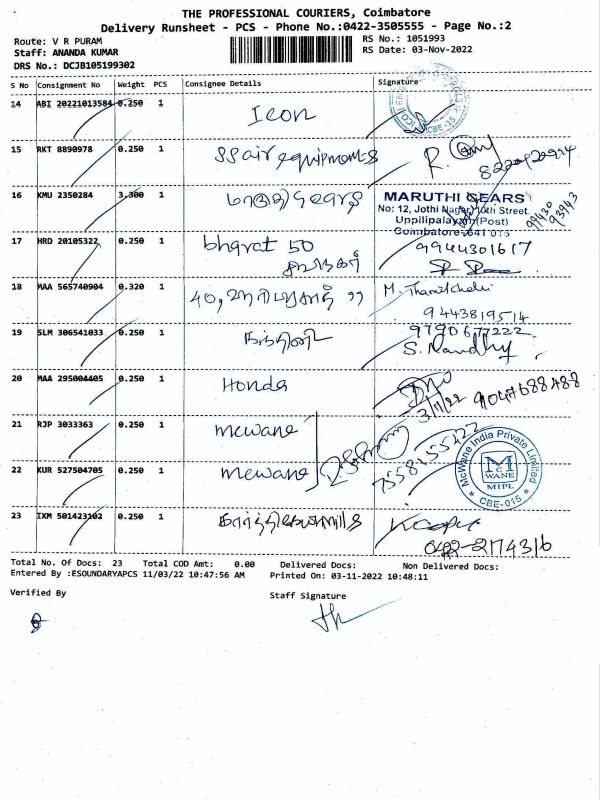 THE PROFESSIONAL COURIERS, Coimbatore
Delivery Runsheet - PCS - Phone No.:0422-3505555 - Page No.:2
Route: V R PURAM
RS No.: 1051993
Staff: ANANDA KUMAR
RS Date: 03-Nov-2022
DRS No.: DCJB105199302
S No Consignment No Weight PCS Consignee Details Signature
14 ABI 20221013584 0.250 1 Icon
CBE-15
15 RKT 8890978 0.250 1 SS air equipments R.
16 KMU 2350284 3.300 1 மாருதி
MARUTHI GEARS
No: 12, Jothi Nagar, 10th Street,
Uppilipalayam (Post)
Coimbatore - 641 015
17 HRD 20105322 0.250 1 bharat 50
9944301617
18 MAA 565740904 0.320 1 40,
9443819514
19 SLM 306541033 0.250 1 நந்தினி
9790677222
S. Nandhy
20 MAA 295004405 0.250 1 Honda
3/11/22 9047688488
21 RJP 3033363 0.250 1 mcwane
22 KUR 527504705 0.250 1 mcwane
McWane India Private Limited
MCWANE
MIPL
CBE-015
23 IXM 501423102 0.250 1
0422-2174316
Total No. Of Docs: 23 Total COD Amt: 0.00 Delivered Docs: Non Delivered Docs:
Entered By :ESOUNDARYAPCS 11/03/22 10:47:56 AM Printed On: 03-11-2022 10:48:11
Verified By
Staff Signature